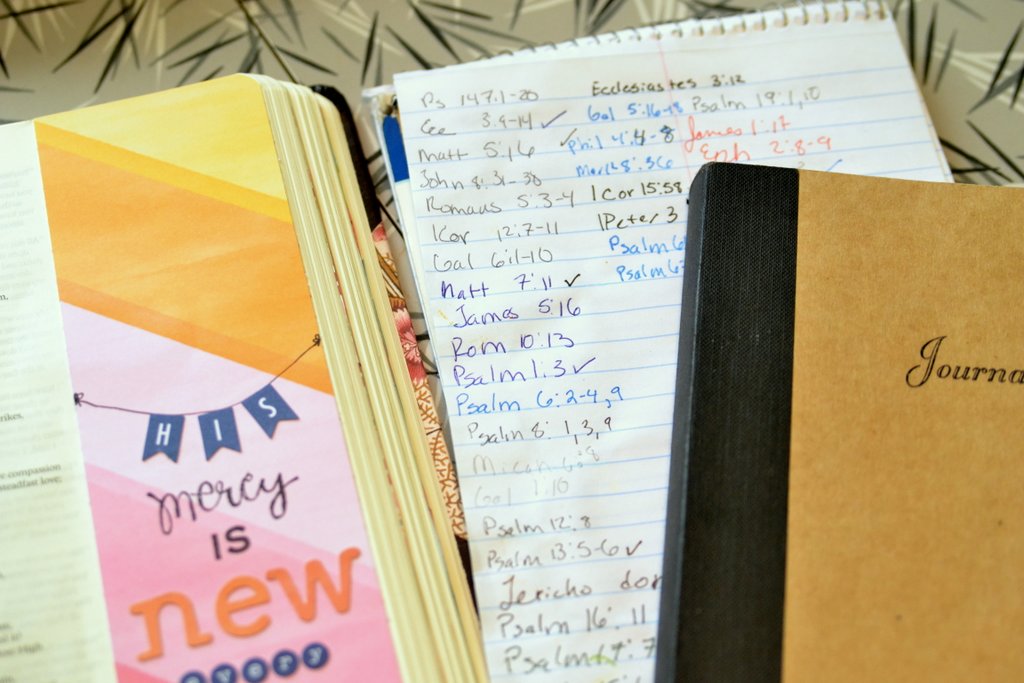 rikes.
compassion
steadfast love;
HIS
mercy
IS
new
every
Ps 147:1-20
Ecclesiastes 3:12
3:9-14 ✓
Gal 5:16-18
Psalm 19:1,10
Matt 5:16
✓ Phil 4:4-8
James 1:17
John 8:31-38
Mark 8:36
Eph 2:8-9
Romans 5:3-4
1 Cor 15:58
1 Cor 12:7-11
1 Peter 3
Gal 6:1-10
Psalm
Matt 7:11 ✓
Psalm
James 5:16
Rom 10:13
Psalm 1:3 ✓
Psalm 6:2-4,9
Psalm 8: 1,3,9
Micah 6:8
Gal 1:10
Psalm 12:8
Psalm 13:5-6 ✓
Jericho
Psalm 16:11
Psalm 17:7
Journa